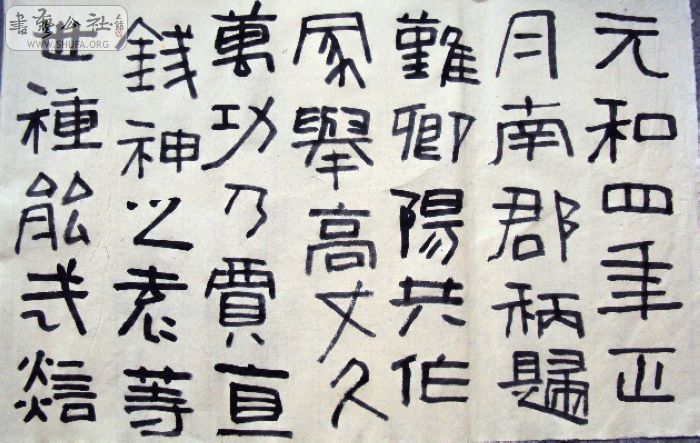 書藝公社
WWW.SHUFA.ORG
元和四年正
月南郡柄歸
難卿陽共作
冢舉高丈久
萬功乃賈直
錢神之等
種能